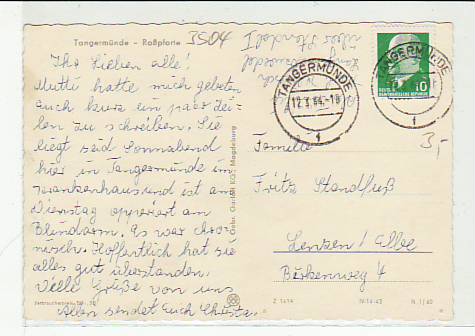 Tangermünde - Roßpforte
3504
Ihr Lieben alle!
Mutti hatte mich gebeten
euch kurz ein paar Zei-
len zu schreiben. Sie
liegt seid Sonnabend
hier in Tangermünde im
Krankenhaus und ist am
Dienstag operiert am
Blinddarm. Es war chro-
nisch. Hoffentlich hat sie
alles gut überstanden.
Viele Grüße von uns
Allen sendet Euch Christa.
über Stendal
TANGERMÜNDE
12.1.64-18
1
TANGERMÜNDE
1
10
DEUTSCHE
DEMOKRATISCHE REPUBLIK
3,-
Gebr. Garloff KG, Magdeburg
Familie
Fritz Standfuß
Lenzen/Elbe
Birkenweg 4
Z 1414
IV-14-43
N. 1/60